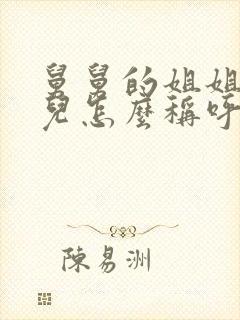 舅舅的姐姐
兒怎麼稱呼
陳易洲